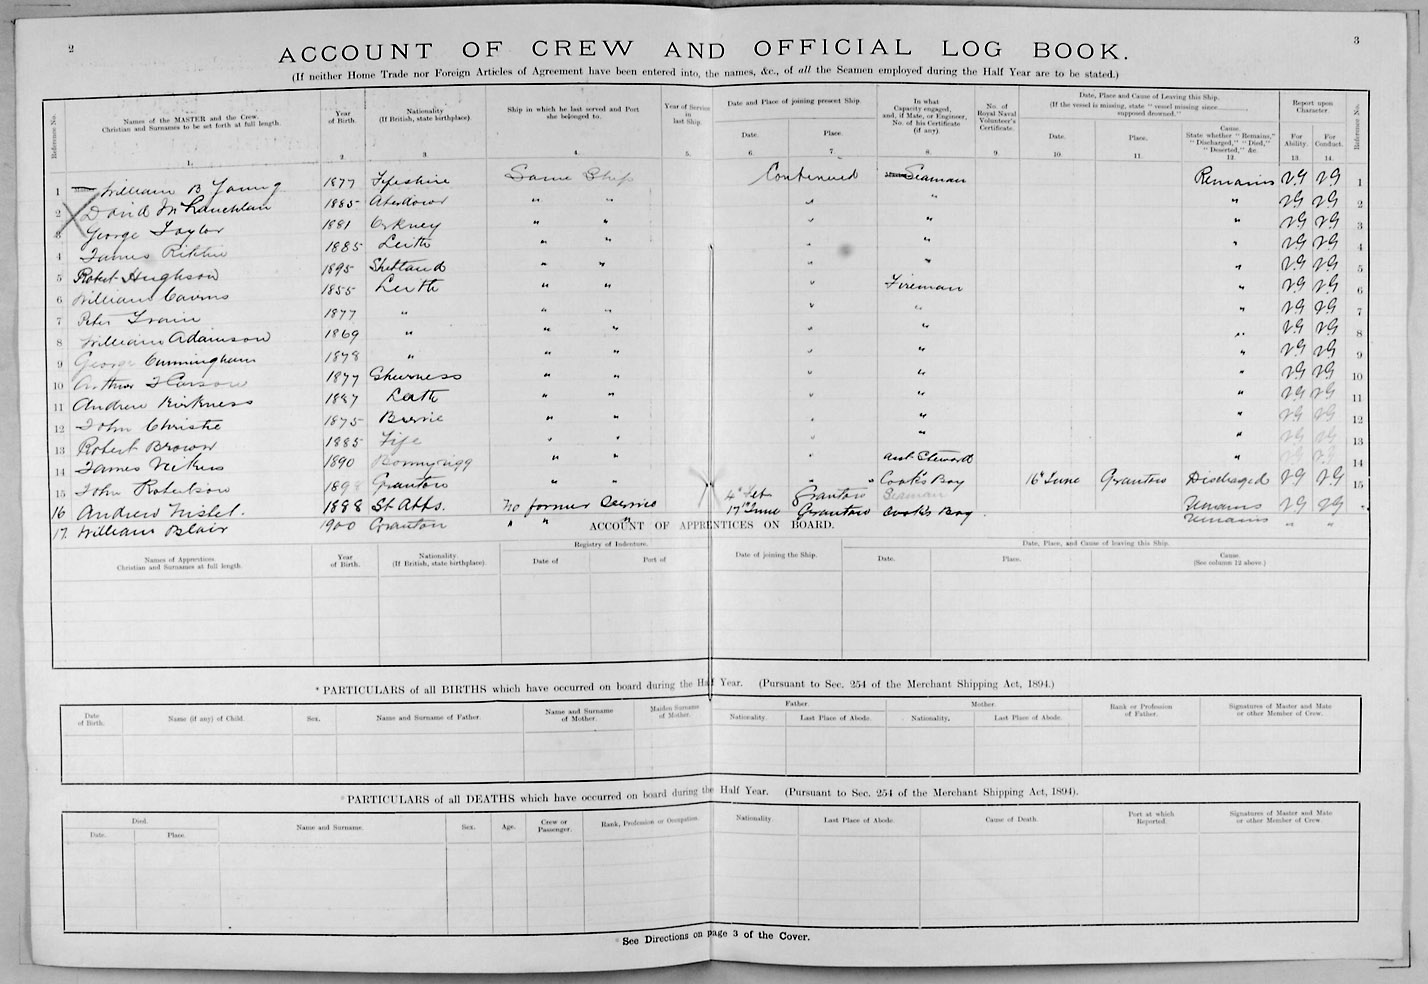 2
3
ACCOUNT OF CREW AND OFFICIAL LOG BOOK.
(If neither Home Trade nor Foreign Articles of Agreement have been entered into, the names, &c., of all the Seamen employed during the Half Year are to be stated.)
Reference No. Names of the MASTER and the Crew. Christian and Surnames to be set forth at full length. Year of Birth. Nationality (If British, state birthplace). Ship in which he last served and Port she belonged to. Year of Service in last Ship. Date and Place of joining present Ship. Date. Place. In what Capacity engaged, and, if Mate, or Engineer, No. of his Certificate (if any). No. of Royal Naval Volunteer's Certificate. Date, Place and Cause of Leaving this Ship. (If the vessel is missing, state "vessel missing since supposed drowned.") Date. Place. Cause. State whether "Remains," "Discharged," "Died," "Deserted," &c. Report upon Character. For Ability. For Conduct. Reference No.
1. 2. 3. 4. 5. 6. 7. 8. 9. 10. 11. 12. 13. 14.
1 William B Young 1877 Fifeshire Same Ship Continued Seaman Remains VG VG 1
2 David McLauchlan 1885 Aberdour " " " " " VG VG 2
3 George Taylor 1881 Orkney " " " " " VG VG 3
4 James Ritchie 1885 Leith " " " " " VG VG 4
5 Robert Hughson 1895 Shetland " " " " " VG VG 5
6 William Cairns 1855 Leith " " " Fireman " VG VG 6
7 Peter Train 1877 " " " " " " VG VG 7
8 William Adamson 1869 " " " " " " VG VG 8
9 George Cunningham 1878 " " " " " " VG VG 9
10 Arthur J Carson 1877 Sheerness " " " " " VG VG 10
11 Andrew Kirkness 1887 Leith " " " " " VG VG 11
12 John Christie 1875 " " " " " VG VG 12
13 Robert Brown 1885 Fife " " " " " VG VG 13
14 James 1890 Bonnyrigg " " " Asst Steward " VG VG 14
15 John Robertson 1898 Granton " " " " Cook's Boy 16th June Granton Discharged VG VG 15
16 Andrew Nisbet. 1888 St Abbs. No former Service 4th Feb Granton Seaman Remains VG VG
17. William Blair 1900 Granton " " " 17th June Granton Cook's Boy Remains " "
ACCOUNT OF APPRENTICES ON BOARD.
Names of Apprentices. Christian and Surnames at full length. Year of Birth. Nationality. (If British, state birthplace). Registry of Indenture. Date of Port of Date of joining the Ship. Date, Place, and Cause of leaving this Ship. Date. Place. Cause. (See column 12 above.)
* PARTICULARS of all BIRTHS which have occurred on board during the Half Year. (Pursuant to Sec. 254 of the Merchant Shipping Act, 1894.)
Date of Birth. Name (if any) of Child. Sex. Name and Surname of Father. Name and Surname of Mother. Maiden Surname of Mother. Father. Nationality. Last Place of Abode. Mother. Nationality. Last Place of Abode. Rank or Profession of Father. Signatures of Master and Mate or other Member of Crew.
* PARTICULARS of all DEATHS which have occurred on board during the Half Year. (Pursuant to Sec. 254 of the Merchant Shipping Act, 1894).
Died. Date. Place. Name and Surname. Sex. Age. Crew or Passenger. Rank, Profession or Occupation. Nationality. Last Place of Abode. Cause of Death. Port at which Reported. Signatures of Master and Mate or other Member of Crew.
* See Directions on page 3 of the Cover.